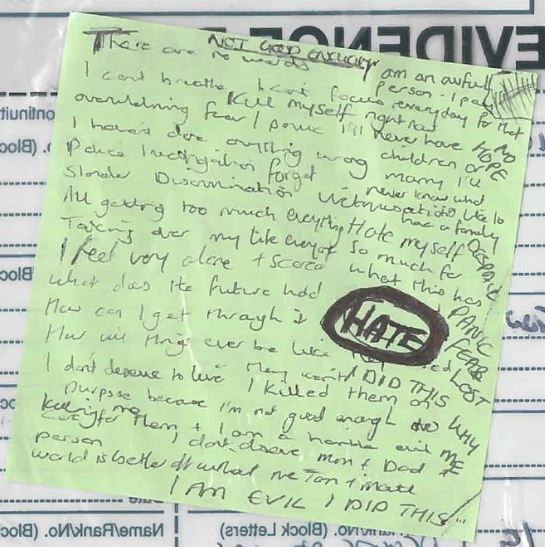 EVIDENCE
There are no words NOT GOOD ENOUGH
I am an awful person - I pay
I can't breathe I can't focus everyday for that
Kill myself right now NO HOPE
overwhelming fear / panic I'll never have
I haven't done anything wrong children or marry I'll
Police Investigation forget never know what
Slander Discrimination Victimisation its like to have a family
All getting too much everything Hate myself DESPAIR
Taking over my life everyone so much for
I feel very alone + scared what this has
what does the future hold PANIC
HATE
How can I get through it FEAR
How will things ever be like LOST
they won't I DID THIS
I don't deserve to live I killed them on
purpose because I'm not good enough WHY
killing me ME
care for them + I am a horrible evil
person I don't deserve mum + Dad +
world is better off without me
I AM EVIL I DID THIS
Continuit
No. (Bloc
Date
Name/Rank/No. (Block
No. (Block Letters)